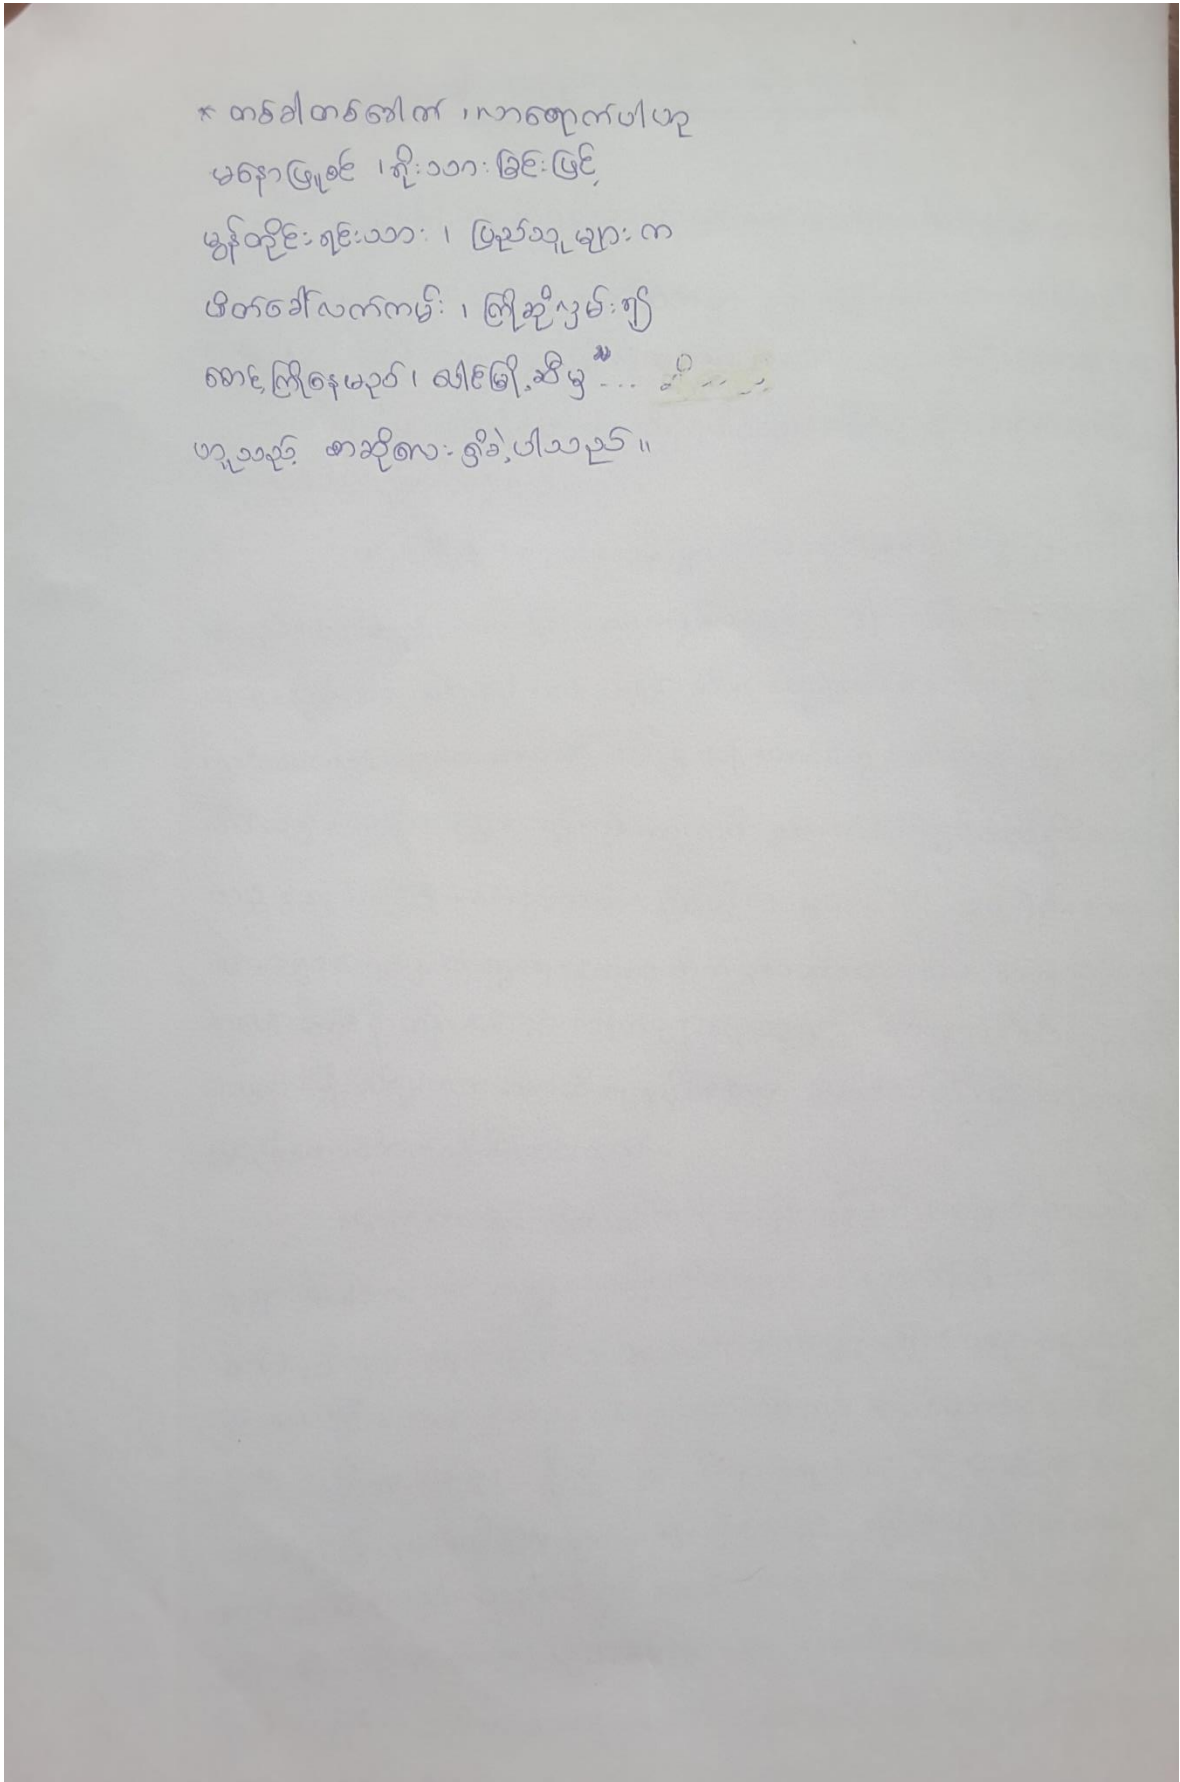 * တစ်ခါတစ်ခေါက် ၊ လာရောက်ပါဟု
မနောဖြူစင် ၊ ရိုးသားခြင်းဖြင့်
မွန်တိုင်းရင်းသား ၊ ပြည်သူများက
ဖိတ်ခေါ်လက်ကမ်း ၊ ကြိုဆိုလှမ်း၍
စောင့်ကြိုနေမည် ၊ သံဖြူ ဆီမှ ... 
ဟူသည့် စာဆိုလေး ရှိခဲ့ပါသည်။